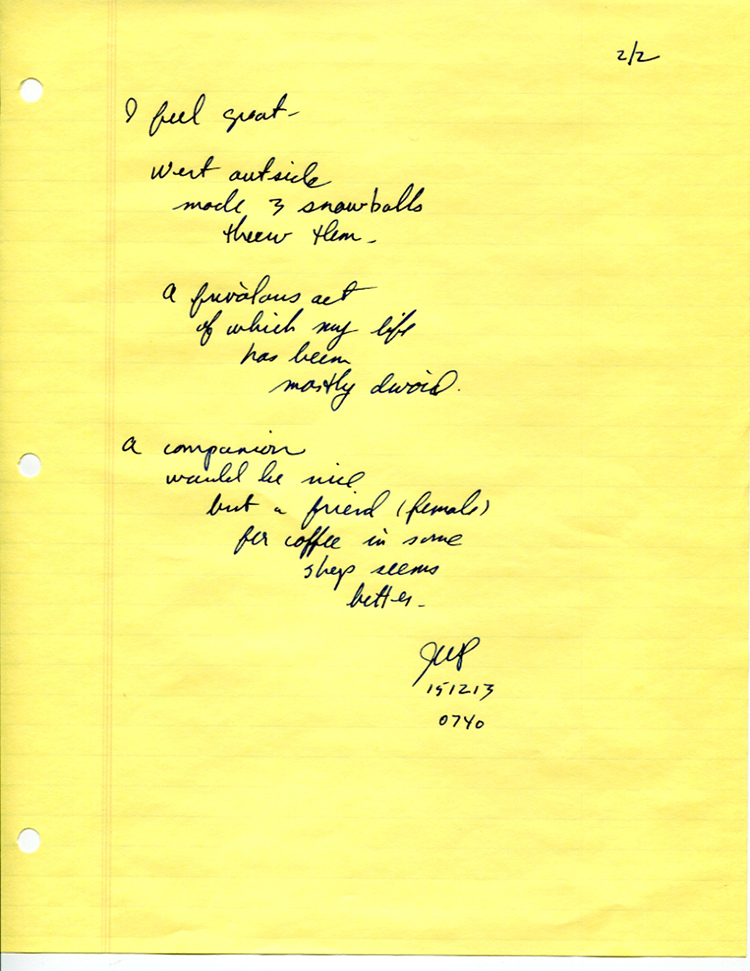 2/2
I feel great-
Went outside
made 3 snowballs
threw them-
A frivolous act
of which my life
has been
mostly devoid.
A companion
would be nice
but a friend (female)
for coffee in some
shop seems
better-
151213
0740